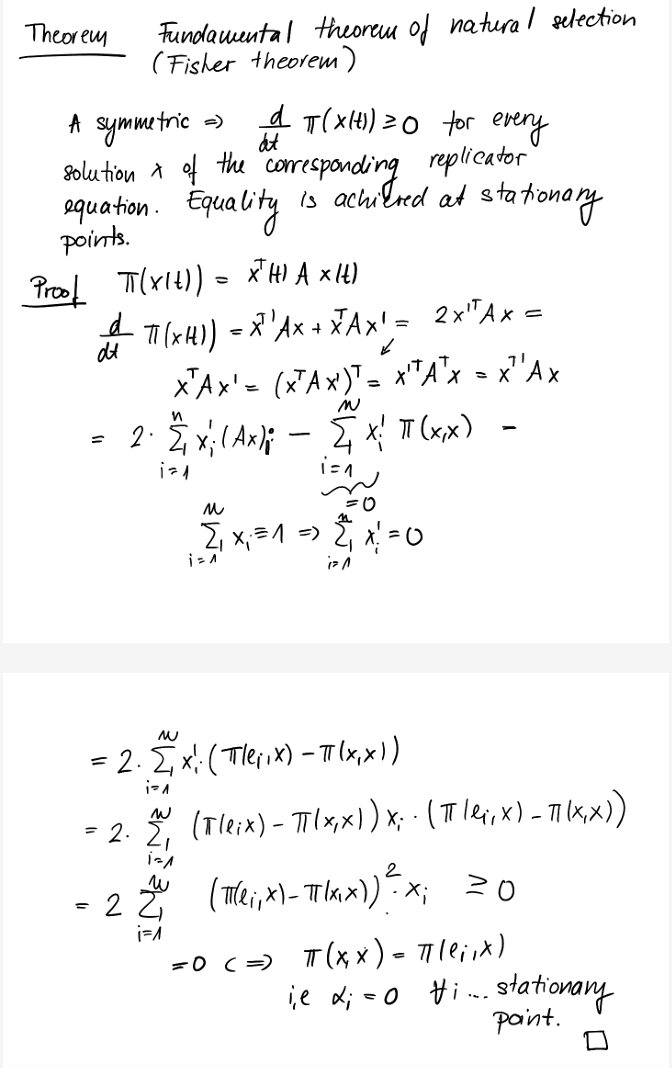 Theorem Fundamental theorem of natural selection
(Fisher theorem)
A symmetric => d/dt π(x(t)) ≥ 0 for every
solution x of the corresponding replicator
equation. Equality is achieved at stationary
points.
Proof π(x(t)) = xᵀ(t) A x(t)
d/dt π(x(t)) = xᵀ'Ax + xᵀAx' = 2x'ᵀAx =
xᵀAx' = (xᵀAx')ᵀ = x'ᵀAᵀx = xᵀ'Ax
= 2· ∑_{i=1}^{n} x_i'(Ax)_i − ∑_{i=1}^{n} x_i' π(x,x) −
=0
∑_{i=1}^{n} x_i ≡ 1 => ∑_{i=1}^{n} x_i' = 0
= 2· ∑_{i=1}^{n} x_i'(π(e_i,x) − π(x,x))
= 2· ∑_{i=1}^{n} (π(e_i x) − π(x,x)) x_i · (π(e_i,x) − π(x,x))
= 2 ∑_{i=1}^{n} (π(e_i,x) − π(x,x))² · x_i ≥ 0
=0 <=> π(x,x) = π(e_i,x)
i,e α_i = 0 ∀i ... stationary
point. □